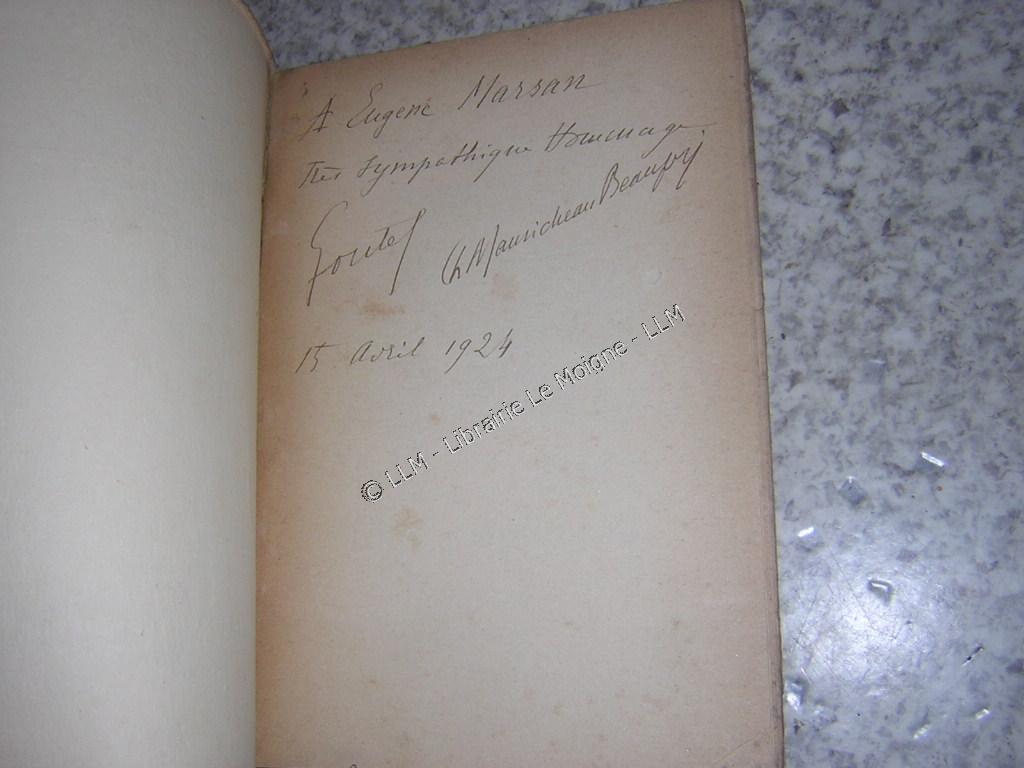 A Eugène Marsan
très sympathique Hommage.
Ch Mauricheau Beaupré
15 Avril 1924
© LLM - Librairie Le Moigne - LLM